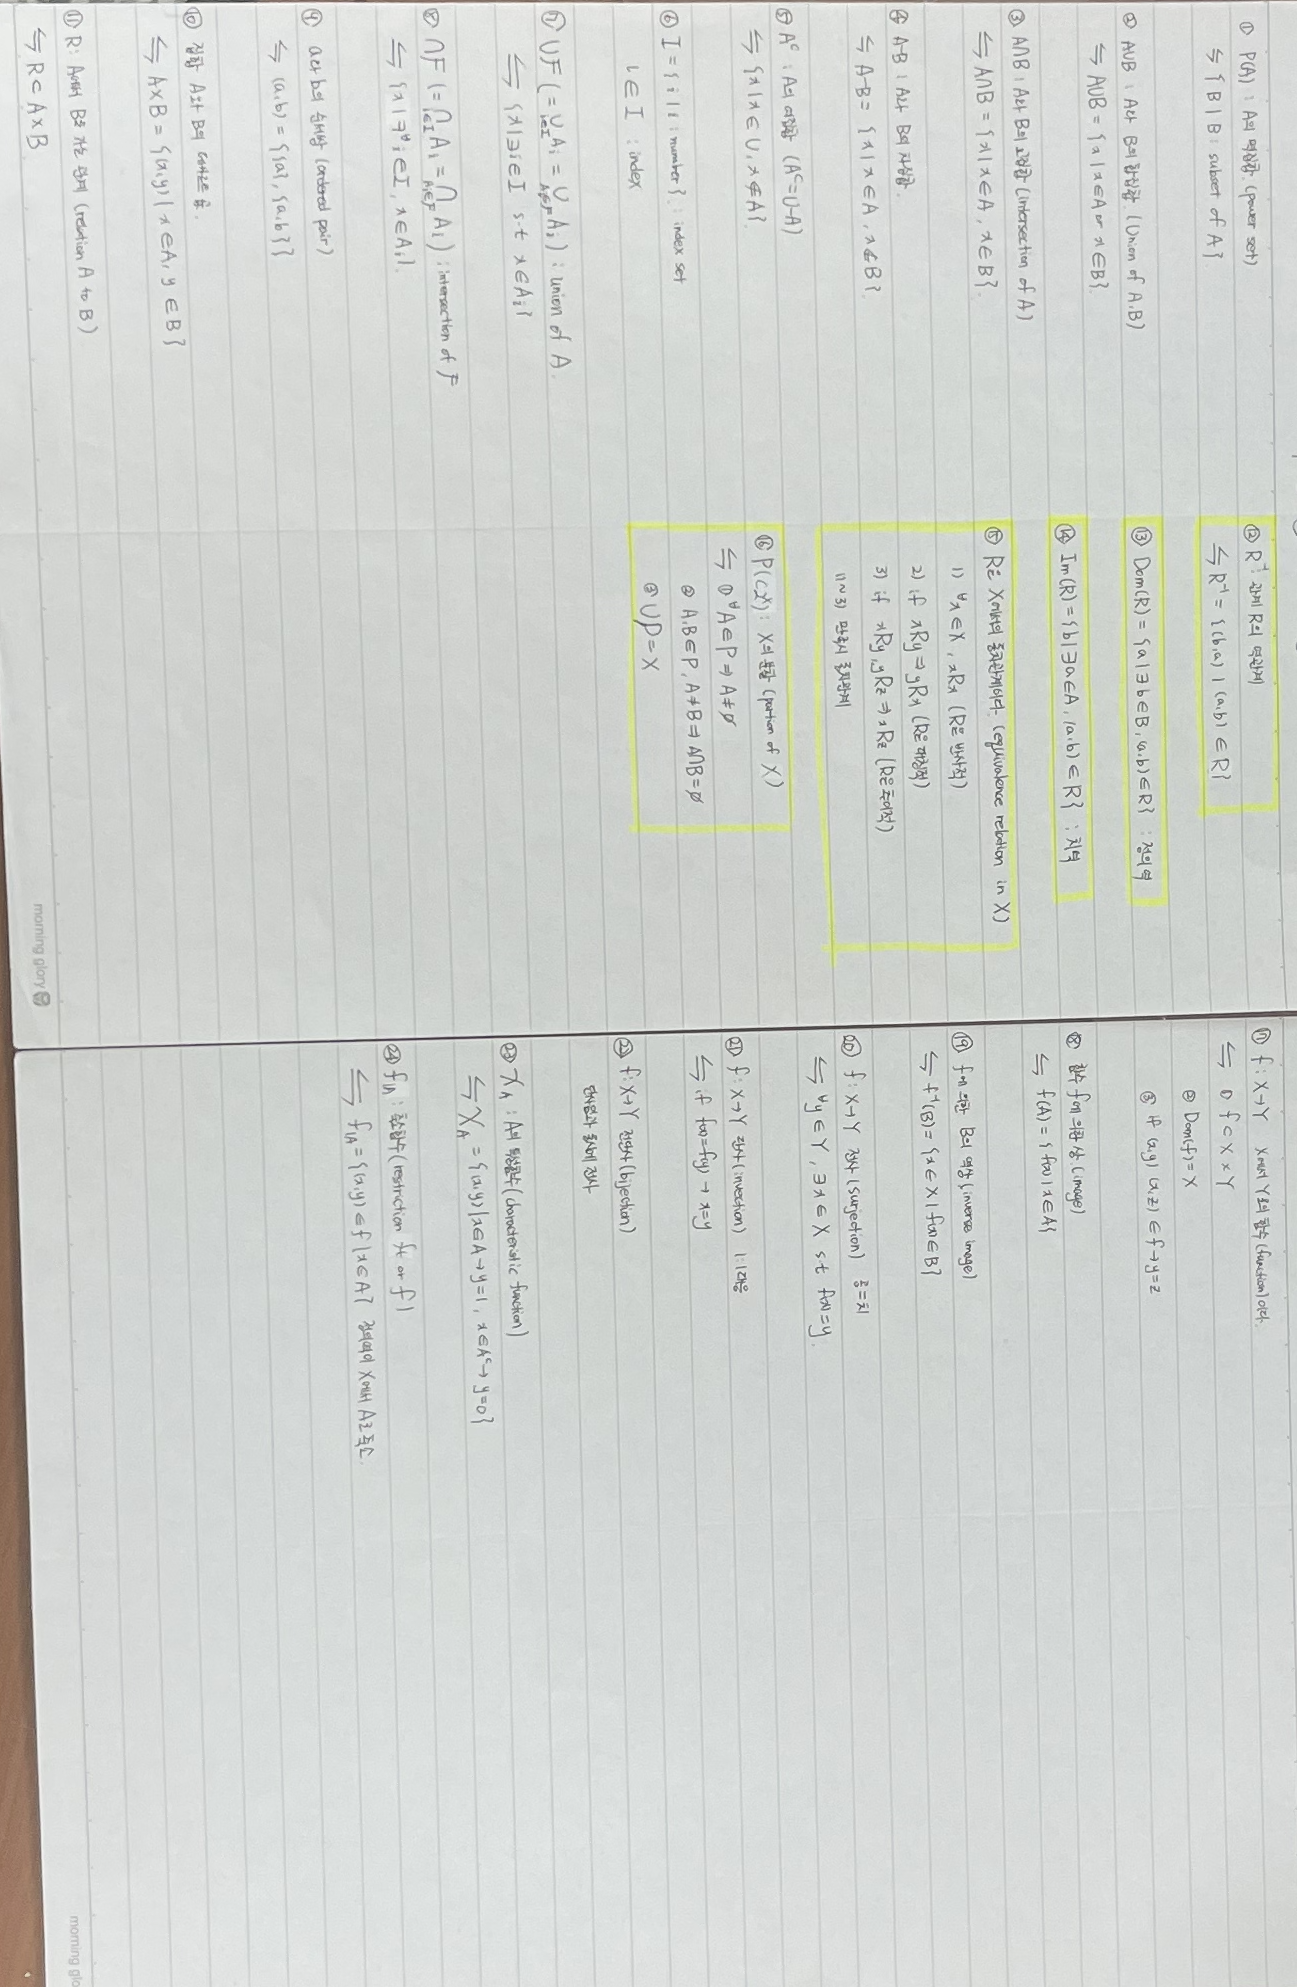 ① P(A) : A의 멱집합. (power set)
⇆ { B | B : subset of A }.
② A∪B : A와 B의 합집합. (Union of A,B)
⇆ A∪B = { x | x∈A or x∈B }.
③ A∩B : A와 B의 교집합 (intersection of A)
⇆ A∩B = { x | x∈A, x∈B }.
④ A-B : A와 B의 차집합.
⇆ A-B = { x | x∈A, x∉B }.
⑤ Aᶜ : A의 여집합 (Aᶜ=U-A)
⇆ { x | x∈U, x∉A }.
⑥ I = { i | i : number } : index set
i∈I : index
⑦ ∪F (= ∪_{i∈I} A_i = ∪_{A_i∈F} A_i) : union of A.
⇆ { x | ∃i∈I s.t x∈A_i }
⑧ ∩F (= ∩_{i∈I} A_i = ∩_{A_i∈F} A_i) : intersection of F
⇆ { x | ∀i∈I, x∈A_i }.
⑨ a와 b의 순서쌍 (ordered pair)
⇆ (a,b) = { {a}, {a,b} }
⑩ 집합 A와 B의 곱.
⇆ A×B = { (x,y) | x∈A, y∈B }
⑪ R : A에서 B로 가는 관계 (relation A to B)
⇆ R⊂A×B
⑫ R⁻¹ : 관계 R의 역관계
⇆ R⁻¹ = { (b,a) | (a,b)∈R }
⑬ Dom(R) = { a | ∃b∈B, (a,b)∈R } : 정의역
⑭ Im(R) = { b | ∃a∈A, (a,b)∈R } : 치역
⑮ R은 X에서의 동치관계이다. (equivalence relation in X)
1) ∀x∈X, xRx (R은 반사적)
2) if xRy ⇒ yRx (R은 대칭적)
3) if xRy, yRz ⇒ xRz (R은 추이적)
1)~3) 만족시 동치관계
⑯ P(⊂2ˣ) : X의 분할 (partion of X)
⇆ ① ∀A∈P ⇒ A≠∅
② A,B∈P, A≠B ⇒ A∩B=∅
③ ∪P=X
⑰ f : X→Y X에서 Y로의 함수 (function)이다.
⇆ ① f⊂X×Y
② Dom(f)=X
③ if (x,y) (x,z)∈f → y=z
⑱ 함수 f에 의한 상. (image)
⇆ f(A) = { f(x) | x∈A }
⑲ f에 의한 B의 역상 (inverse image)
⇆ f⁻¹(B) = { x∈X | f(x)∈B }
⑳ f : X→Y 전사 (surjection) 공=치
⇆ ∀y∈Y, ∃x∈X s.t f(x)=y.
㉑ f : X→Y 단사 (invection) 1:1대응
⇆ if f(x)=f(y) → x=y
㉒ f : X→Y 전단사 (bijection)
단사임과 동시에 전사
㉓ χ_A : A의 특성함수 (characteristic function)
⇆ χ_A = { (x,y) | x∈A → y=1, x∈Aᶜ → y=0 }
㉔ f|_A : 축소함수 (restriction ft or f)
⇆ f|_A = { (x,y)∈f | x∈A } 정의역이 X에서 A로 축소.
morning glory
morning glo